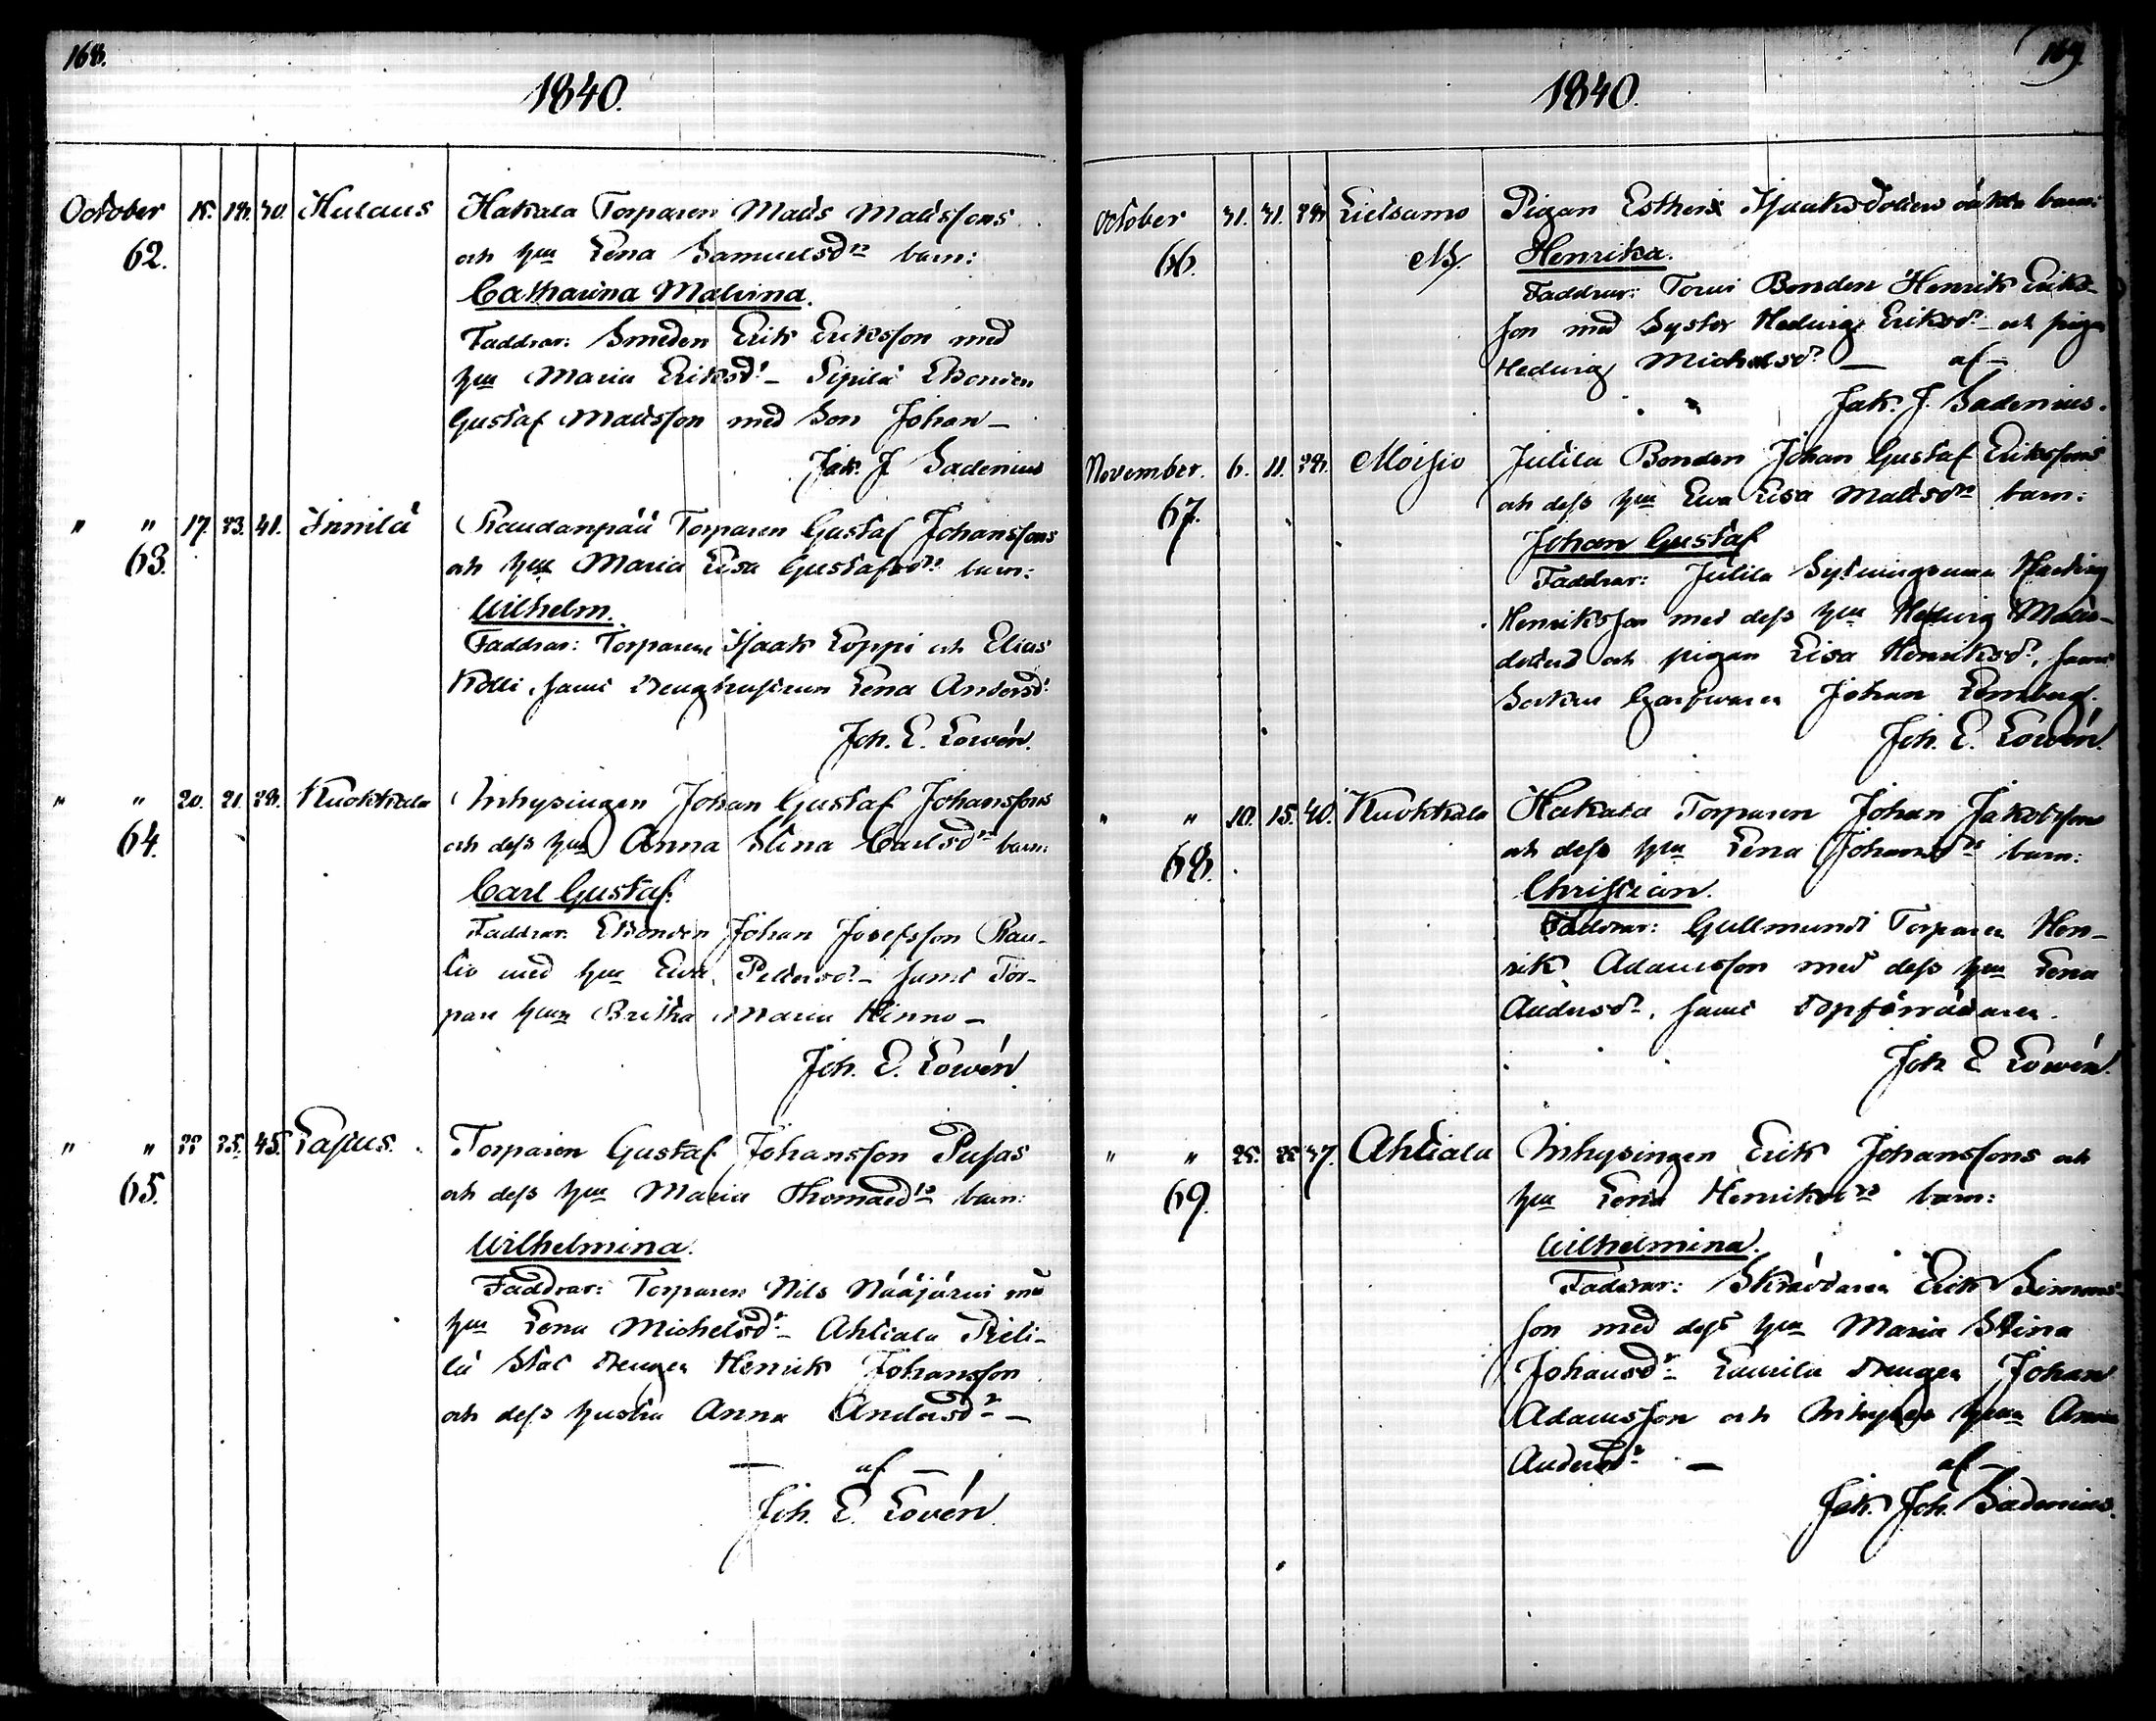 168.
1840.
October 15. 18. 30. Hulaus Hakala Torparen Matts Mattssons
62. och hu Lena Samuelsdrs barn:
Catharina Malvina.
Faddrar: Smeden Erik Eriksson med
hu Maria Eriksdr – Sipilä
Gustaf Mattsson med Son Johan –
Jak. J. Sadenius
" " 17. 23. 41. Innilä Torparen Gustaf Johanssons
63. och hu Maria Lisa Gustafsdrs barn:
Wilhelm.
Faddrar: Torparene Isaak Loppi och Elias
Kolli, samt Lena Andersdr
Joh. E. Lovén.
" " 20. 21. 28. Kuokkala Inhysingen Johan Gustaf Johanssons
64. och dess hu Anna Stina Carlsdrs barn:
Carl Gustaf.
Faddrar: Johan Josefsson Rau-
tio med hu Eva Pettersdr – samt Tor-
pare hun Britha Maria Kinno –
Joh. E. Lovén.
" " 22 25. 45. Torparen Gustaf Johansson Pusas
65. och dess hu Maria Thomasdrs barn:
Wilhelmina.
Faddrar: Torparen Nils Nääjärvi med
hu Lena Michelsdr – Ahtiala Prelli-
lä Stat drengen Henrik Johansson
och dess hustru Anna Andersdr –
– af –
Joh. E. Lovén.
169.
1840.
October 31. 31. 28. Lielsamo Pigan Esthers Isaaksdotters oäkta barn:
66. Henrika.
Faddrar: Bonden Henrik Eriks-
son med Syster Hedvig Eriksdr – och pigan
Hedvig Michelsdr – af –
Jak. J. Sadenius.
November. 6. 11. 28. Moisio Julila Bonden Johan Gustaf Erikssons
67. och dess hu Eva Lisa Mattsdrs barn:
Johan Gustaf
Faddrar: Julila
Henriksson med dess hu Hedvig Matts-
dotter och pigan Lisa Henriksdr, samt
Garfvaren Johan
Joh. E. Lovén.
" " 10. 15. 40. Kuokkala Hakala Torparen Johan Jakobssons
68. och dess hu Lena Johansdrs barn:
Christian.
Faddrar: Gullmundi Torparen Hen-
rik Adamsson med dess hu Lena
Andersdr, samt Dopförrättaren.
Joh. E. Lovén.
" " 25. 37. Ahtiala Inhysingen Erik Johanssons och
69. hu Lena Henriksdrs barn:
Wilhelmina.
Faddrar: Skräddaren Erik Simons-
son med dess hu Maria Stina
Johansdr – Laurila drengen Johan
Adamsson och Inhyses hun Anna
Andersdr – af –
Jak. Joh. Sadenius.